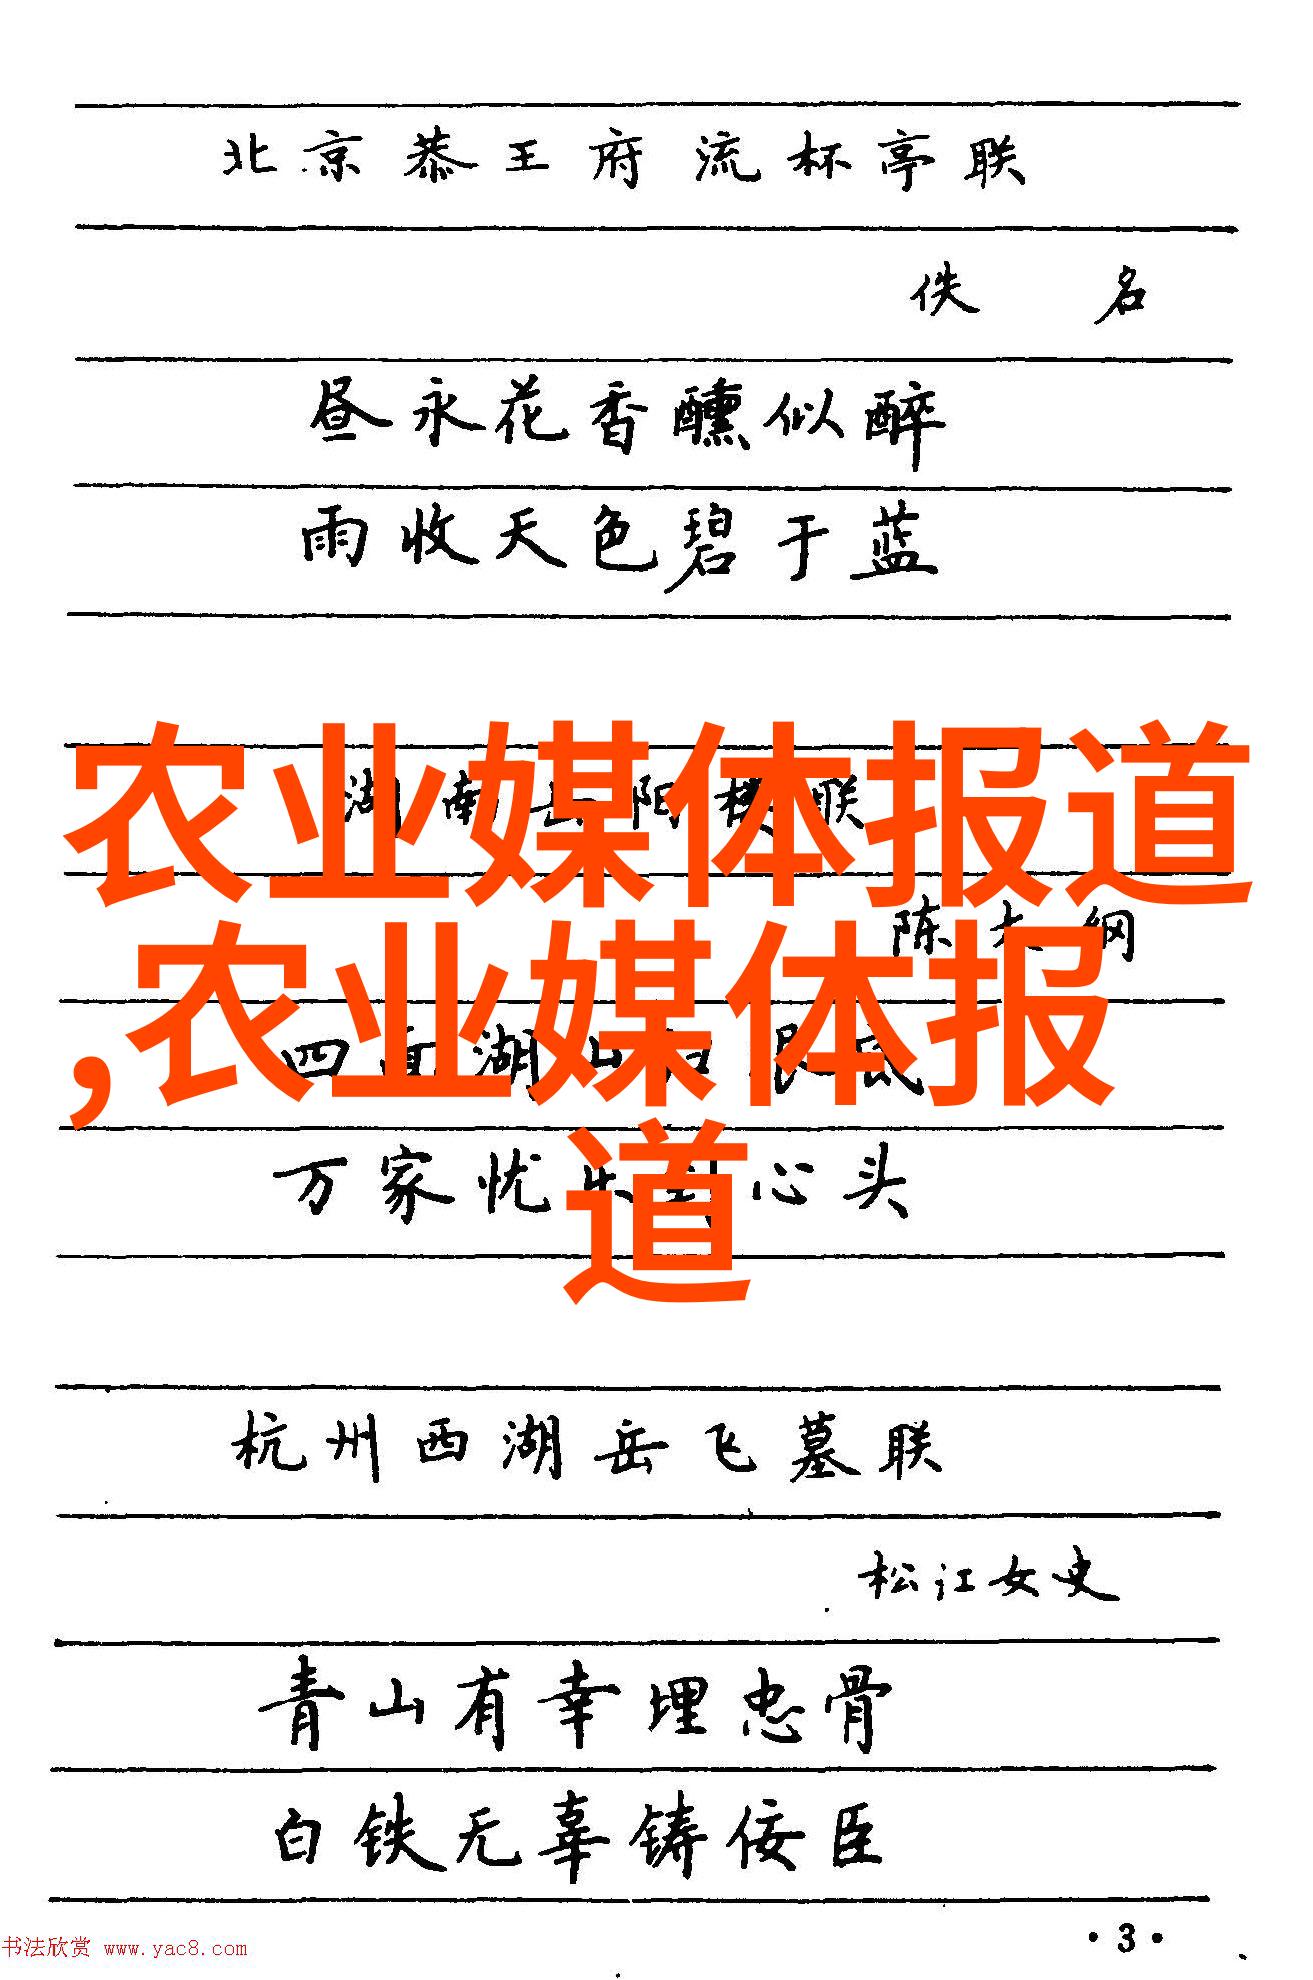 北京恭王府流杯亭联
佚名
昼永花香醺似醉
雨收天色碧于蓝
农业媒体报道
湖南岳阳楼联
陈大纲
,农业媒体报
四面湖山归眼底
万家忧乐到心头
道
杭州西湖岳飞墓联
松江女史
青山有幸埋忠骨
白铁无辜铸佞臣
书法欣赏 www.yac8.com
·3·